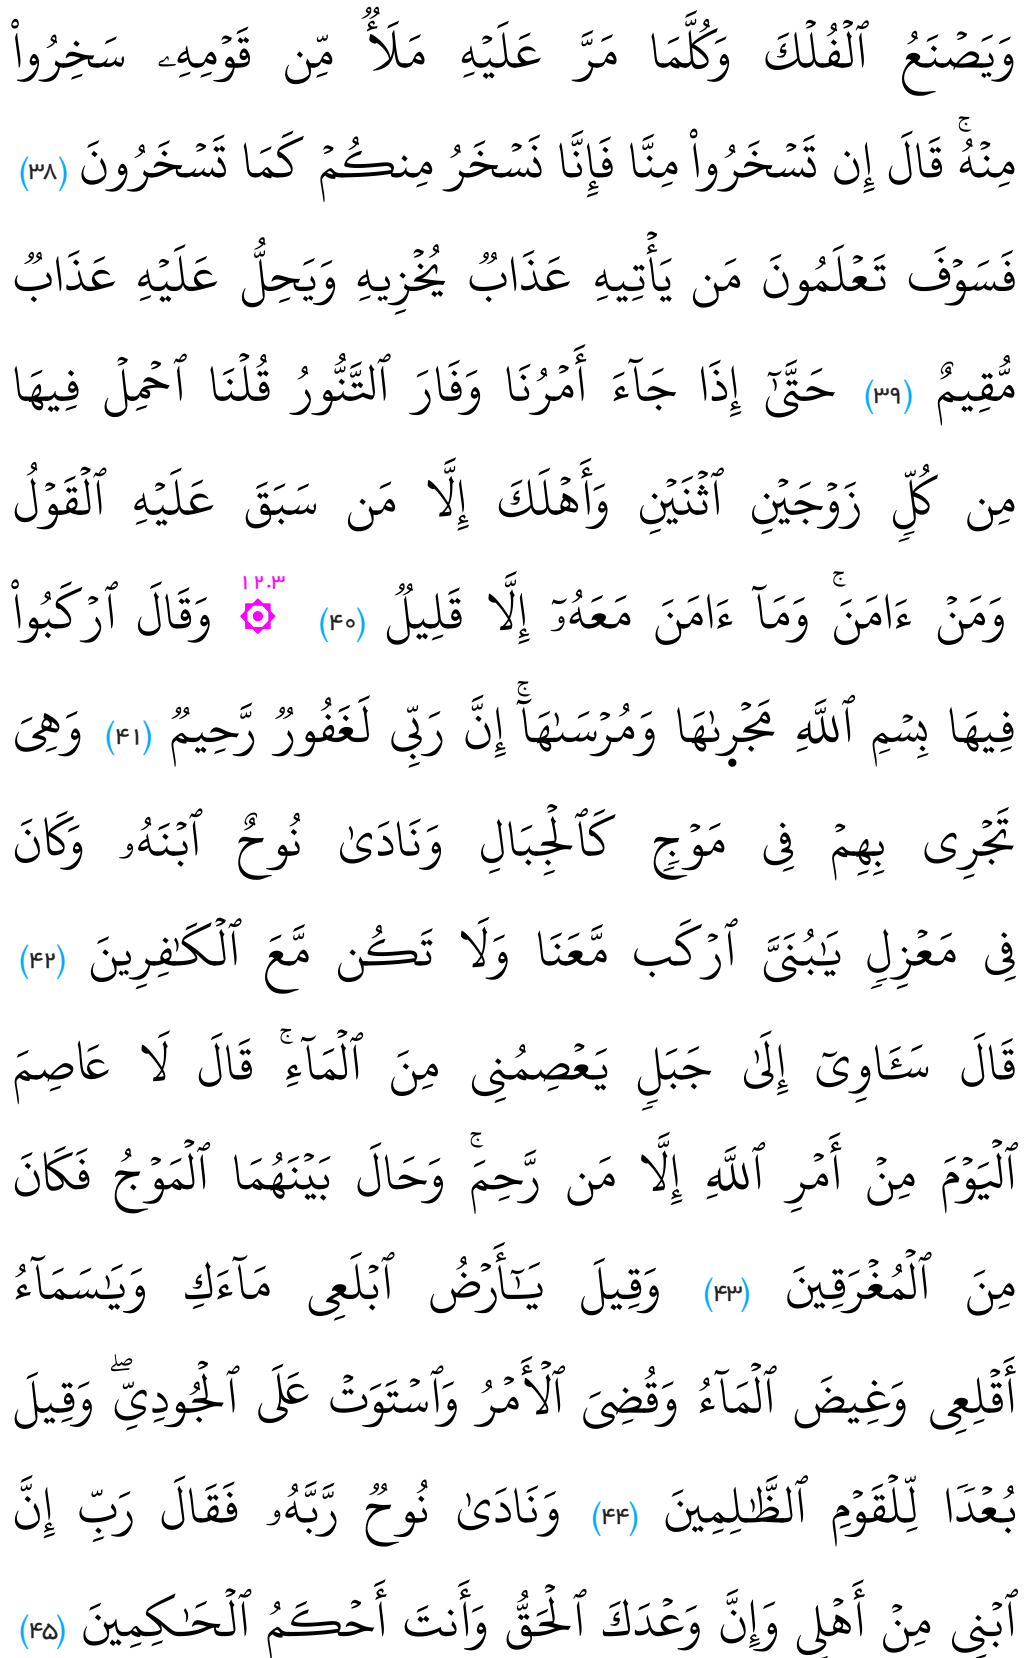 وَيَصۡنَعُ ٱلۡفُلۡكَ وَكُلَّمَا مَرَّ عَلَيۡهِ مَلَأٞ مِّن قَوۡمِهِۦ سَخِرُواْ
مِنۡهُۚ قَالَ إِن تَسۡخَرُواْ مِنَّا فَإِنَّا نَسۡخَرُ مِنكُمۡ كَمَا تَسۡخَرُونَ (۳۸)
فَسَوۡفَ تَعۡلَمُونَ مَن يَأۡتِيهِ عَذَابٞ يُخۡزِيهِ وَيَحِلُّ عَلَيۡهِ عَذَابٞ
مُّقِيمٌ (۳۹) حَتَّىٰٓ إِذَا جَآءَ أَمۡرُنَا وَفَارَ ٱلتَّنُّورُ قُلۡنَا ٱحۡمِلۡ فِيهَا
مِن كُلّٖ زَوۡجَيۡنِ ٱثۡنَيۡنِ وَأَهۡلَكَ إِلَّا مَن سَبَقَ عَلَيۡهِ ٱلۡقَوۡلُ
وَمَنۡ ءَامَنَۚ وَمَآ ءَامَنَ مَعَهُۥٓ إِلَّا قَلِيلٞ (۴۰) ۱۲.۳ ۞ وَقَالَ ٱرۡكَبُواْ
فِيهَا بِسۡمِ ٱللَّهِ مَجۡر۪ىٰهَا وَمُرۡسَىٰهَآۚ إِنَّ رَبِّي لَغَفُورٞ رَّحِيمٞ (۴۱) وَهِيَ
تَجۡرِي بِهِمۡ فِي مَوۡجٖ كَٱلۡجِبَالِ وَنَادَىٰ نُوحٌ ٱبۡنَهُۥ وَكَانَ
فِي مَعۡزِلٖ يَٰبُنَيَّ ٱرۡكَب مَّعَنَا وَلَا تَكُن مَّعَ ٱلۡكَٰفِرِينَ (۴۲)
قَالَ سَـَٔاوِيٓ إِلَىٰ جَبَلٖ يَعۡصِمُنِي مِنَ ٱلۡمَآءِۚ قَالَ لَا عَاصِمَ
ٱلۡيَوۡمَ مِنۡ أَمۡرِ ٱللَّهِ إِلَّا مَن رَّحِمَۚ وَحَالَ بَيۡنَهُمَا ٱلۡمَوۡجُ فَكَانَ
مِنَ ٱلۡمُغۡرَقِينَ (۴۳) وَقِيلَ يَٰٓأَرۡضُ ٱبۡلَعِي مَآءَكِ وَيَٰسَمَآءُ
أَقۡلِعِي وَغِيضَ ٱلۡمَآءُ وَقُضِيَ ٱلۡأَمۡرُ وَٱسۡتَوَتۡ عَلَى ٱلۡجُودِيِّۖ وَقِيلَ
بُعۡدٗا لِّلۡقَوۡمِ ٱلظَّٰلِمِينَ (۴۴) وَنَادَىٰ نُوحٞ رَّبَّهُۥ فَقَالَ رَبِّ إِنَّ
ٱبۡنِي مِنۡ أَهۡلِي وَإِنَّ وَعۡدَكَ ٱلۡحَقُّ وَأَنتَ أَحۡكَمُ ٱلۡحَٰكِمِينَ (۴۵)